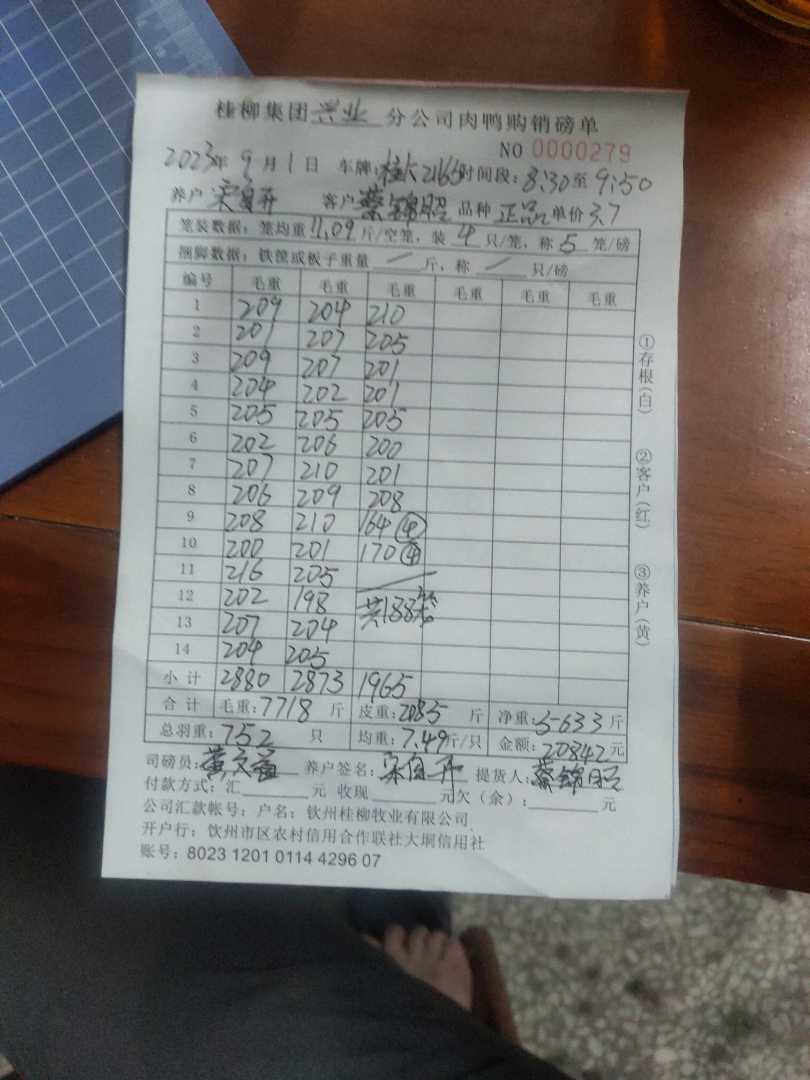 桂柳集团兴业分公司肉鸭购销磅单
NO 0000279
2023年9月1日 车牌:桂K2165 时间段:8:30至9:50
养户 客户蔡锦昭 品种正品 单价3.7
笼装数据:笼均重11.09斤/空笼,装4只/笼,称5笼/磅
捆脚数据:铁筐或板子重量/斤,称/只/磅
编号 毛重 毛重 毛重 毛重 毛重 毛重
1 209 204 210
2 201 207 205
3 209 207 201
4 204 202 201
5 205 205 205
6 202 206 200
7 207 210 201
8 206 209 208
9 208 210 164④
10 200 201 170④
11 216 205
12 202 198 共188笼
13 207 204
14 204 205
小计 2880 2873 1965
合计 毛重:7718斤 皮重:2085斤 净重:5633斤
总羽重:752只 均重:7.49斤/只 金额:20842元
司磅员: 养户签名: 提货人:蔡锦昭
付款方式:汇元 收现元欠(余):元
公司汇款帐号:户名:钦州桂柳牧业有限公司
开户行:钦州市区农村信用合作联社大垌信用社
账号:8023 1201 0114 4296 07
①存根(白)
②客户(红)
③养户(黄)